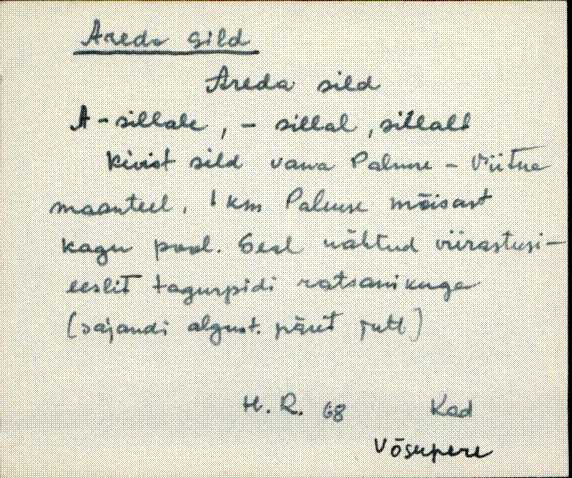 Areda sild
Areda sild
A-sillale, - sillal, sillalt
Kivist sild vana Palmse - Viitna
maanteel, 1 km Palmse mõisast
kagu pool. Seal nähtud viirastusi-
eeslit tagurpidi ratsanikuga
(sajandi algust. pärit jutt)
H. R. 68 Kad
Võsupere